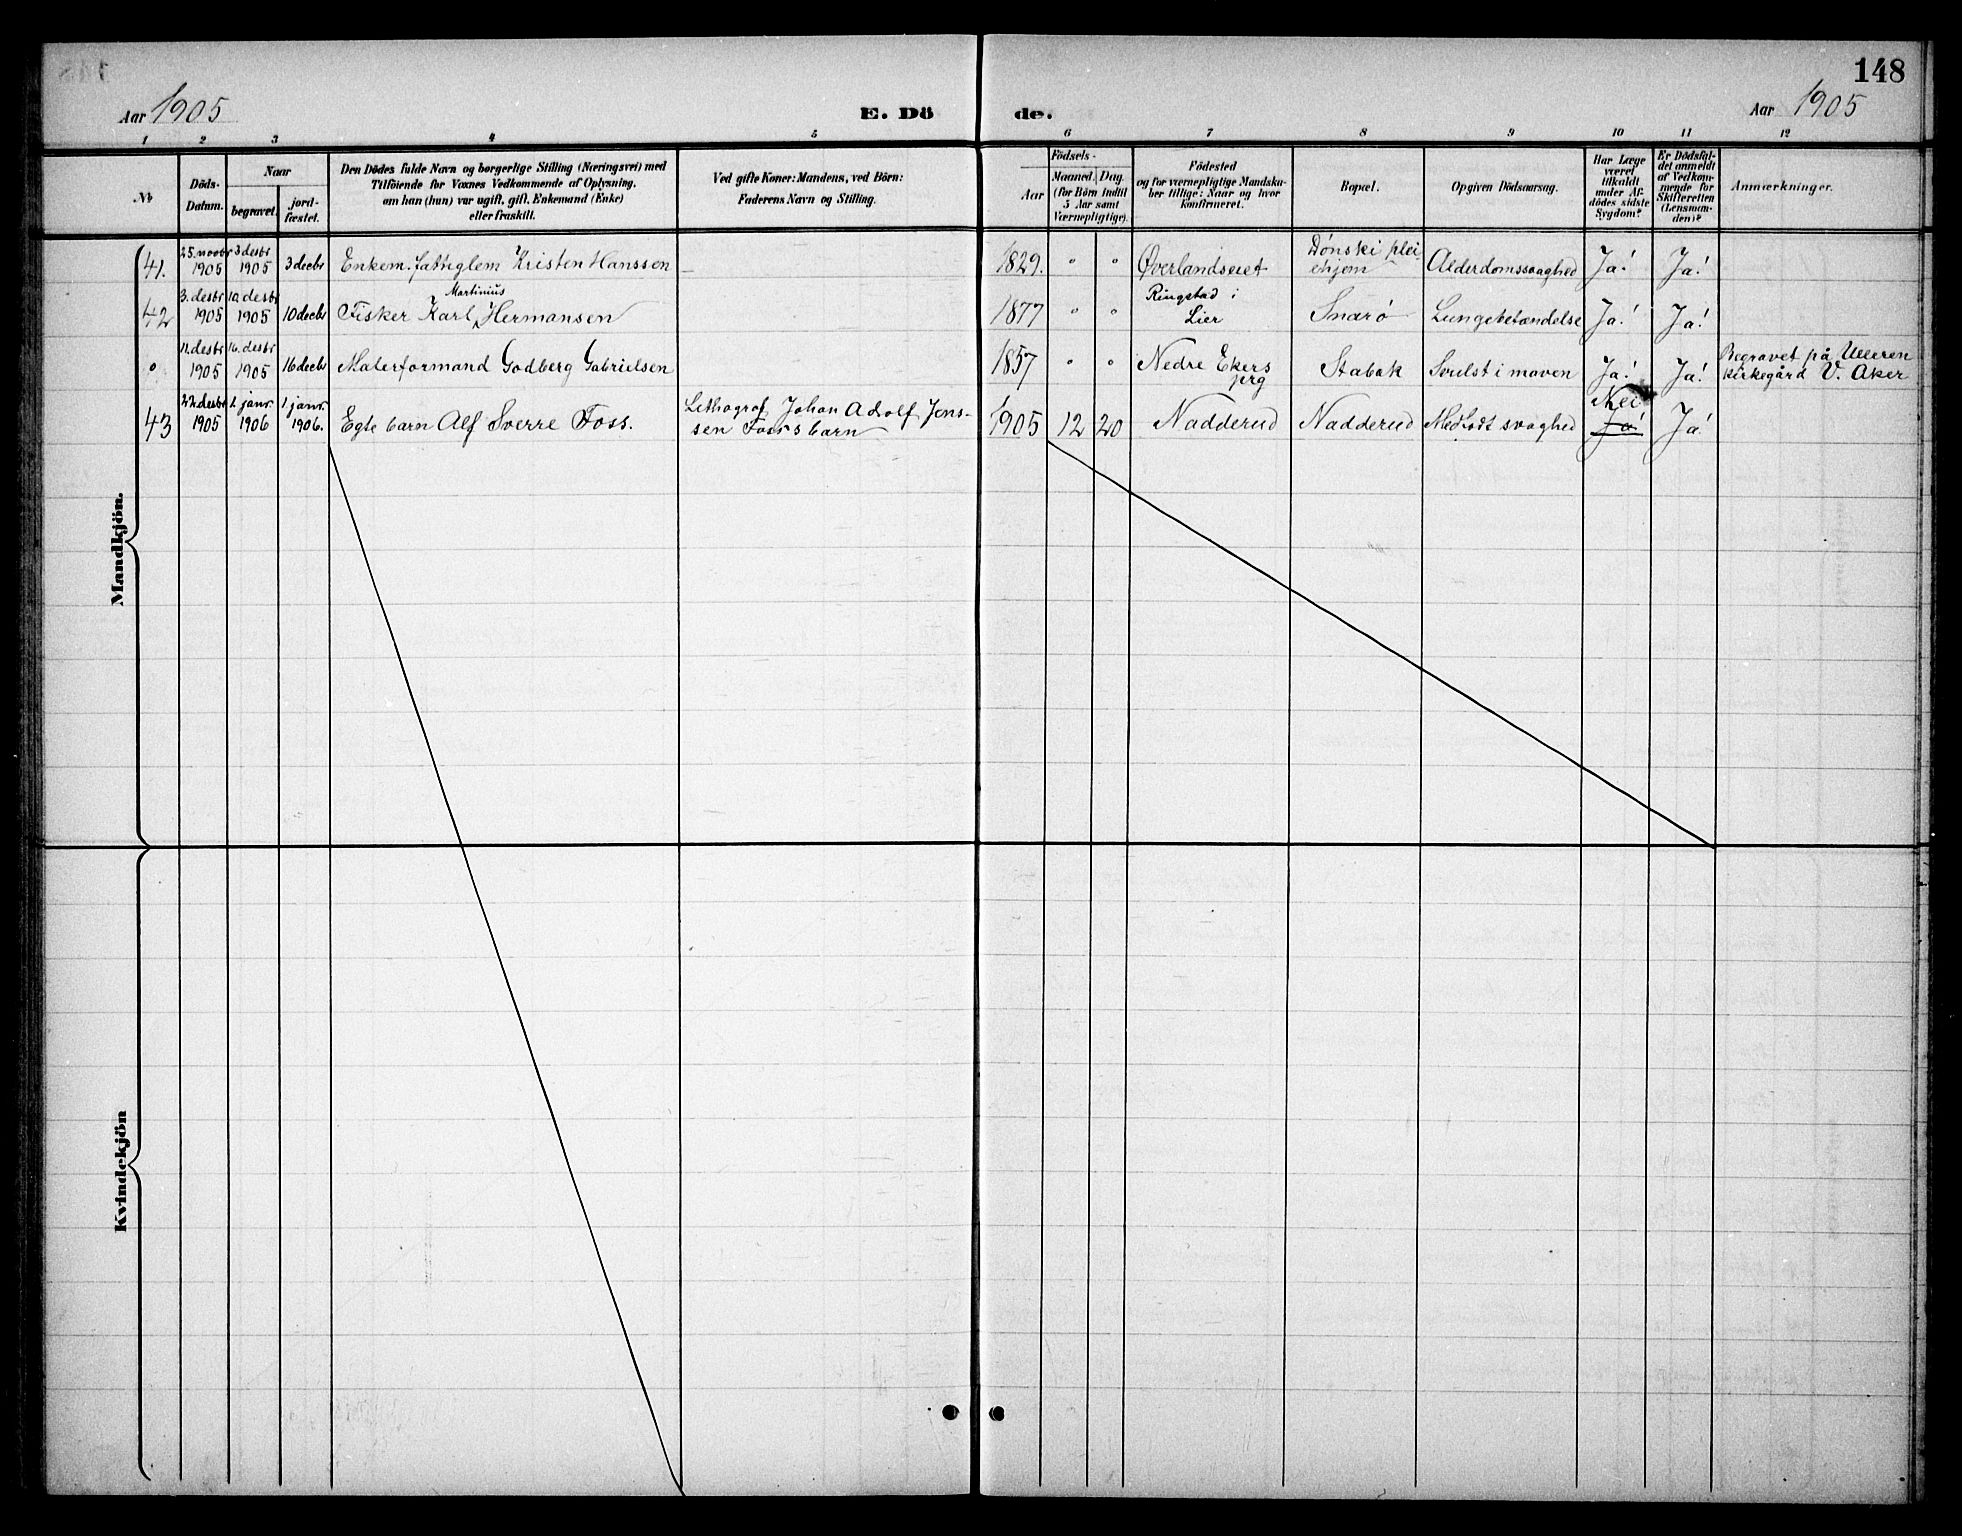 148
Aar 1905
E. Dö
de.
Aar 1905
1 2 3 4 5 6 7 8 9 10 11 12
No
Döds-
Datum.
Naar
begravet.
jord-
fæstet.
Den Dödes fulde Navn og borgerlige Stilling (Næringsvei) med
Tilföiende for Voxnes Vedkommende af Oplysning,
om han (hun) var ugift, gift, Enkemand (Enke)
eller fraskilt.
Ved gifte Koner: Mandens, ved Börn:
Faderens Navn og Stilling.
Födsels-
Aar
Maaned. Dag.
(for Börn indtil
5 Aar samt
Værnepligtige).
Födested
og for værnepligtige Mandska-
ber tillige: Naar og hvor
konfirmeret.
Bopæl.
Opgiven Dödsaarsag.
Har Læge
været
tilkaldt
under Af-
dödes sidste
Sygdom?
Er Dödsfal-
det anmeldt
af Vedkom-
mende for
Skifteretten
(Lensman-
den)?
Anmærkninger.
Mandkjön.
41. 25. novbr 1905 3 desbr 1905 3 decbr Enkem. fattiglem Kristen Hanssen — 1829. " " Øverlandseiet Dønski pleiehjem Alderdomssvaghed Ja! Ja!
42 3. desbr 1905 10. desbr 1905 10 decbr Fisker Karl Martinius Hermansen 1877 " " Ringstad i Lier Snarø Lungebetændelse Ja! Ja!
" 11. desbr 1905 16. desbr 1905 16 decbr Malerformand Godberg Gabrielsen 1857 " " Nedre Ekers prg Stabæk Svulst i maven Ja! Ja! Begravet på Ulleren kirkegård V. Aker
43 22. desbr 1905 1. janr 1906 1 janr. 1906. Egte barn Alf Sverre Foss. Lithograf Johan Adolf Jenssen Foss's barn 1905 12 20 Nadderud Nadderud Medfødt svaghed Nei Ja! Ja!
Kvindekjön